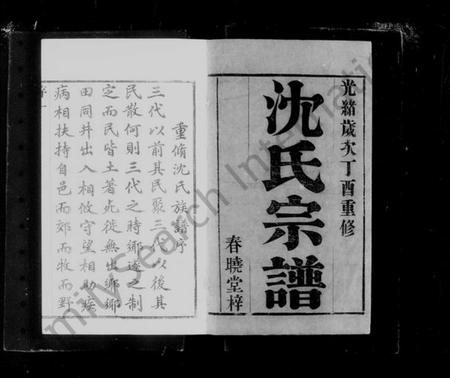 光緒歲次丁酉重修
沈氏宗譜
春曉堂梓
重脩沈氏族譜序
三代以前其民聚三代以後其
民散何則三代之時鄉遂之制
定而民皆土著死徙無出鄉鄉
田同井出入相攸守望相助疾
病相扶持自邑而郊而牧而野